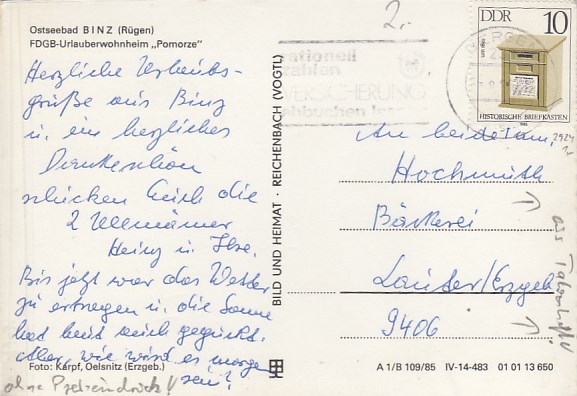 Ostseebad BINZ (Rügen)
FDGB-Urlauberwohnheim „Pomorze“
Herzliche Urlaubs-
grüße aus Binz
u. ein herzliches
Dankeschön
schicken Euch die
2 Ullmänner
Heinz u. Ilse.
Bis jetzt war das Wetter
zu ertragen u. die Sonne
hat heut auch geguckt.
Aber, wie wird es morgen
sein?
Foto: Karpf, Oelsnitz (Erzgeb.)
ohne Preiseindruck!!
BILD UND HEIMAT · REICHENBACH (VOGTL)
2.-
zahlen
VERSICHERUNG
DDR 10
um 1860
HISTORISCHE BRIEFKASTEN
1985
2924
An
Hochmuth
Bäckerei
Lauter/Erzgeb
9406
aus
A 1/B 109/85 IV-14-483 01 01 13 650